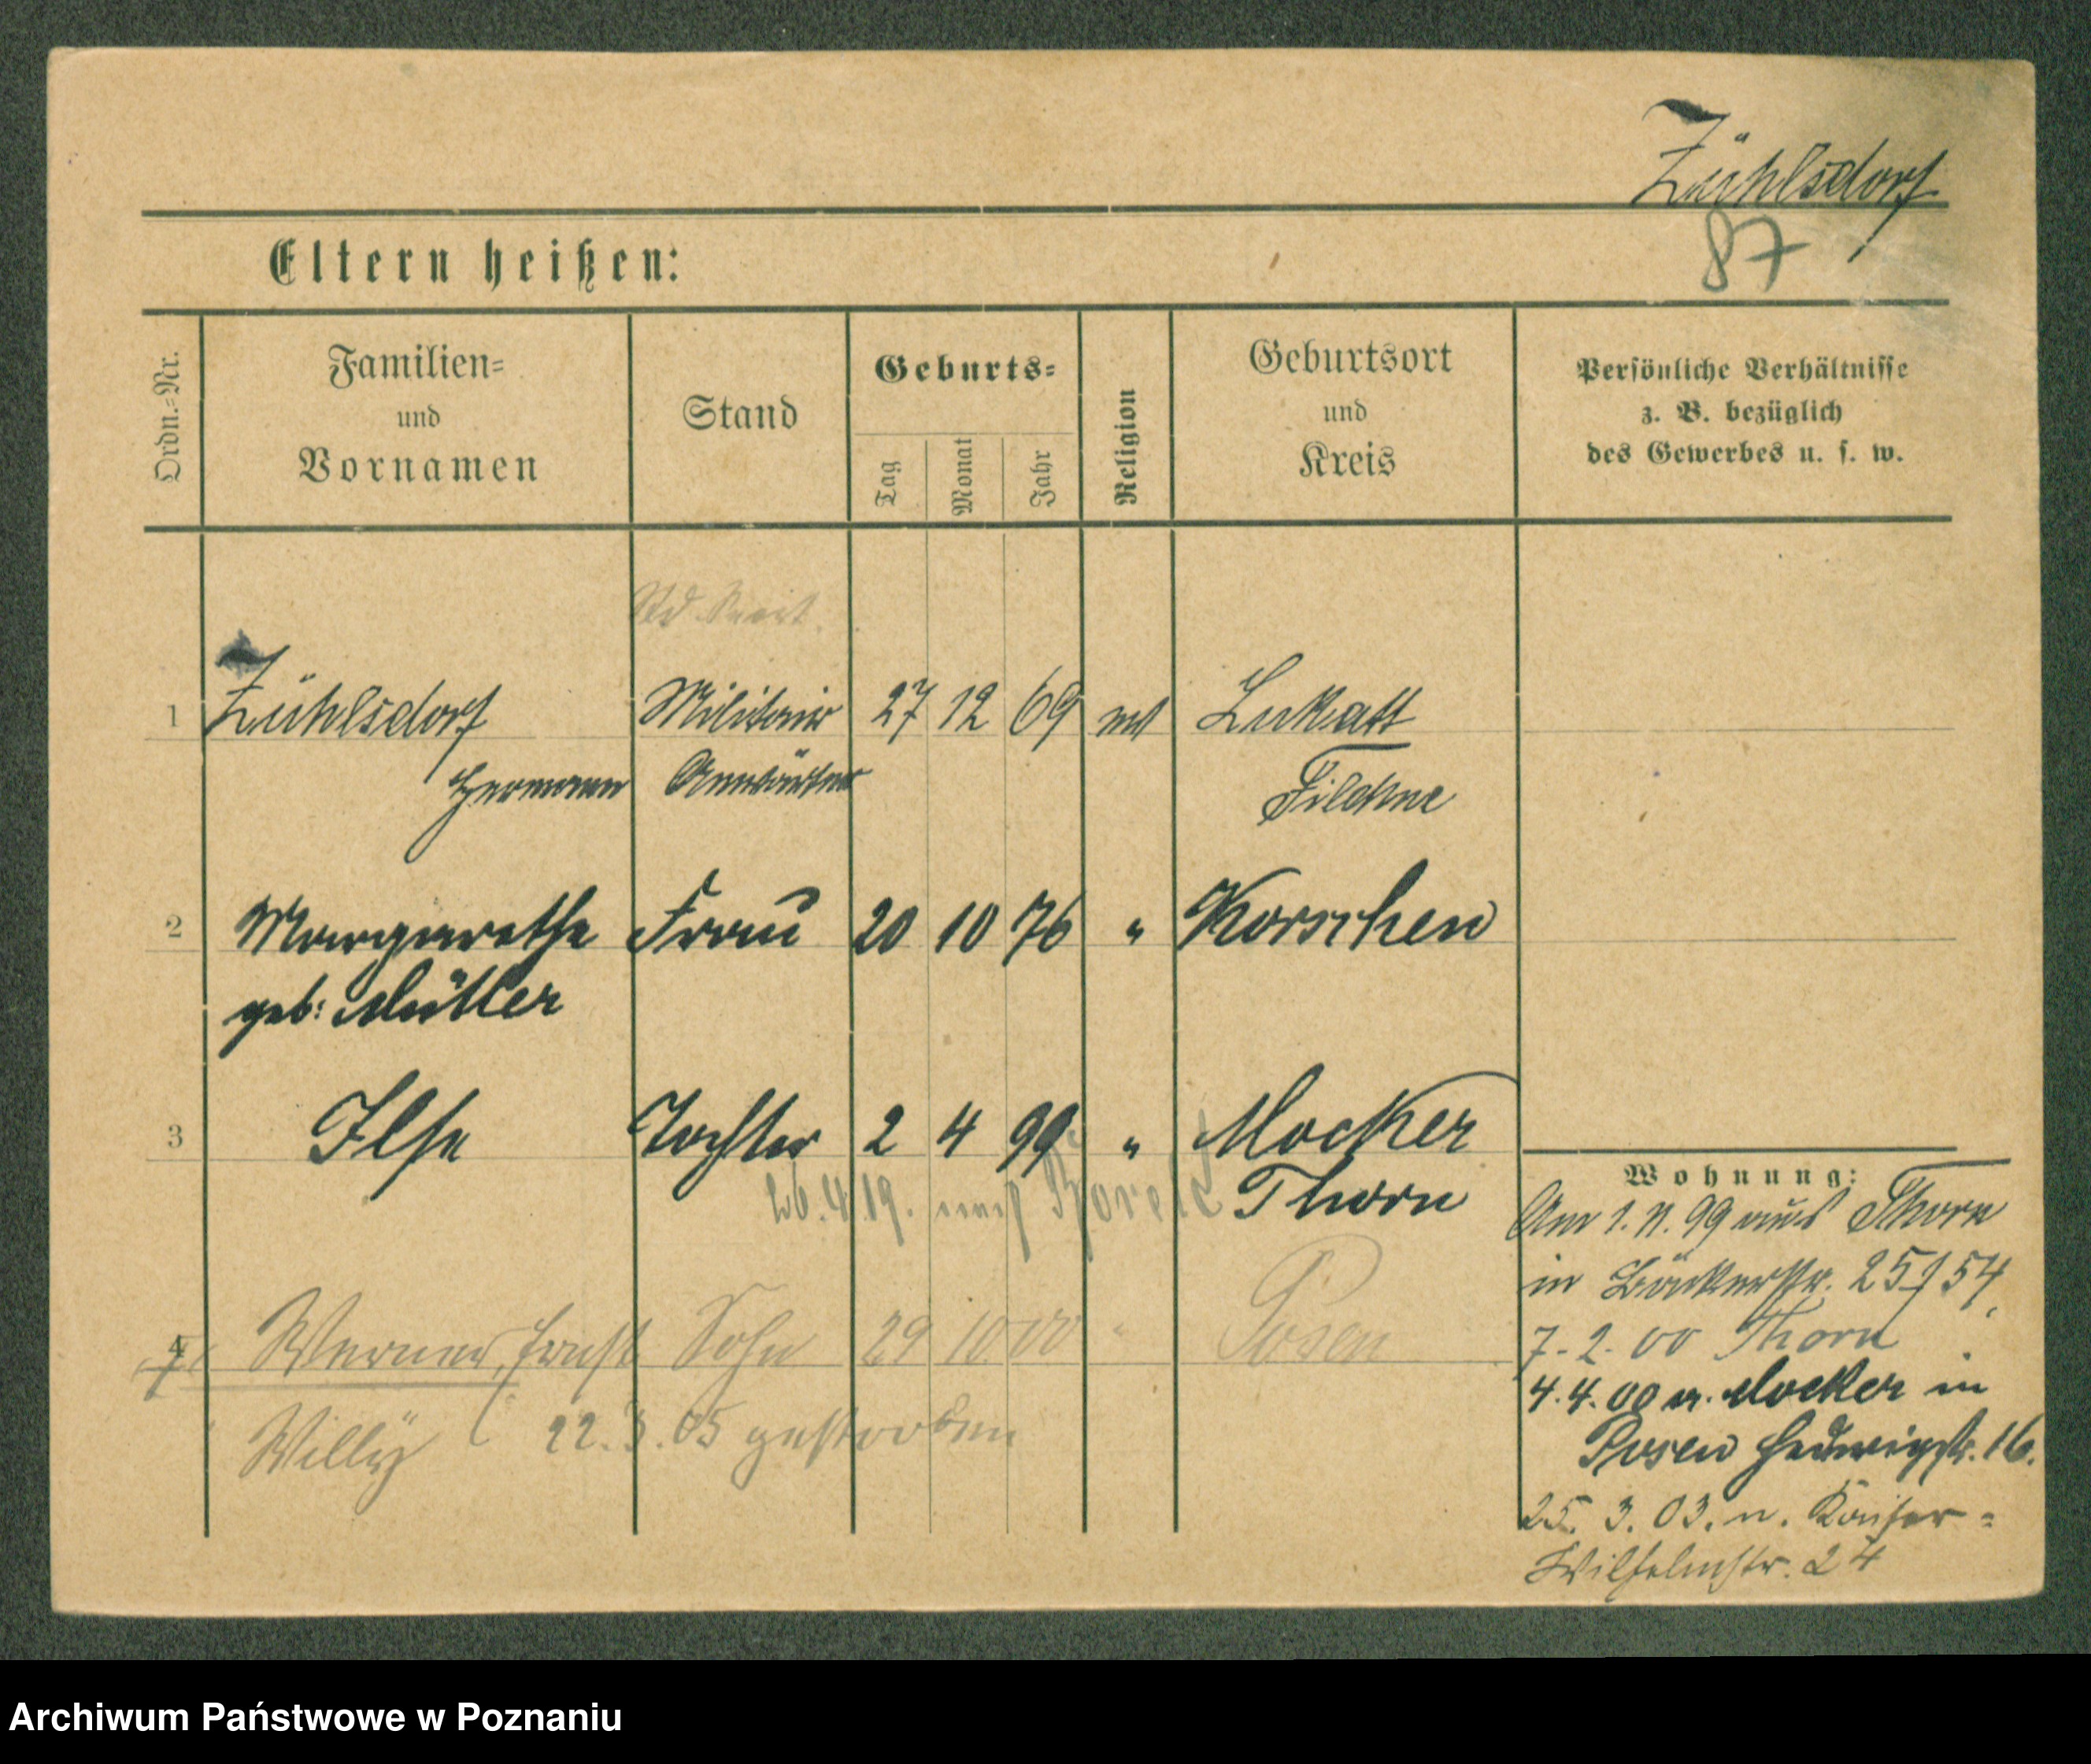 Zühlsdorf
87
Eltern heißen:
Ordn.-Nr.
Familien-
und
Vornamen
Stand
Geburts-
Tag
Monat
Jahr
Religion
Geburtsort
und
Kreis
Persönliche Verhältnisse
z. B. bezüglich
des Gewerbes u. s. w.
1 Zühlsdorf Militair 27 12 69 Lukatt
Hermann Anwärter Filehne
2 Margarethe Frau 20 10 76 " Korschen
geb: Müller
3 Ilse Tochter 2 4 99 " Mocker
26.4.19. nach Thorn
4 Werner, Ernst Sohn 29 10 00 " Posen
Willÿ 22.3.05 gestorben
Wohnung:
Am 1. 11. 99 aus Thorn
in Bäckerstr. 25/54
7. 2. 00 Thorn
4. 4. 00 v. Mocker in
Posen Hedwigstr. 16.
25. 3. 03. n. Kaiser-
Wilhelmstr. 24
Archiwum Państwowe w Poznaniu